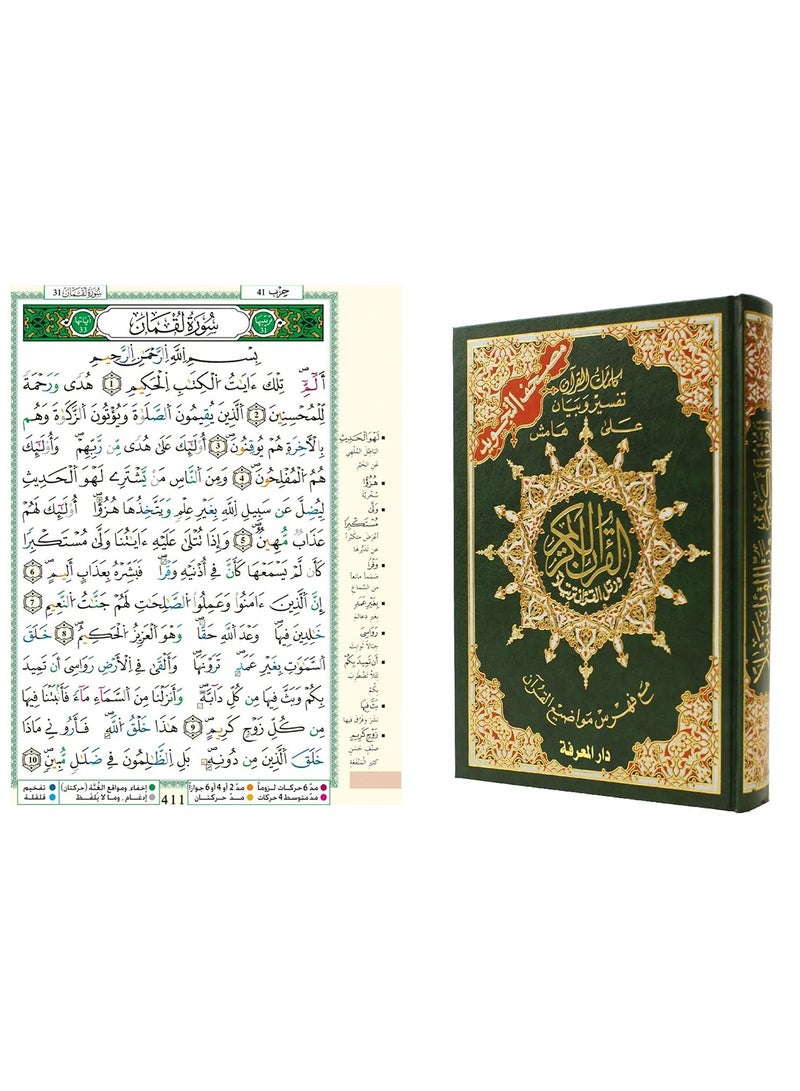 سُورَة لُقْمَان 31
حِزْب 41
آيَاتُهَا
سُورَةُ لُقْمَان
بِسْمِ اِللَّهِ اِلرَّحْمَٰنِ اِلرَّحِيمِ
أَلَٓمِّٓ تِلْكَ ءَايَٰتُ اُلْكِتَٰبِ اِلْحَكِيمِ 1 هُدًى وَرَحْمَةً
لِّلْمُحْسِنِينَ 2 اَلَّذِينَ يُقِيمُونَ اَلصَّلَوٰةَ وَيُؤْتُونَ اَلزَّكَوٰةَ وَهُم
بِالَاخِرَةِ هُمْ يُوقِنُونَ 3 أُوْلَٰٓئِكَ عَلَىٰ هُدًى مِّن رَّبِّهِمْ وَأُوْلَٰٓئِكَ
هُمُ اُلْمُفْلِحُونَ 4 وَمِنَ اَلنَّاسِ مَنْ يَّشْتَرِے لَهْوَ اَلْحَدِيثِ
لِيُضِلَّ عَن سَبِيلِ اِللَّهِ بِغَيْرِ عِلْمٍ وَيَتَّخِذُهَا هُزُؤًا أُوْلَٰٓئِكَ لَهُمْ
عَذَابٌ مُّهِينٌ 5 وَإِذَا تُتْلَىٰ عَلَيْهِ ءَايَٰتُنَا وَلَّىٰ مُسْتَكْبِرًا
كَأَن لَّمْ يَسْمَعْهَا كَأَنَّ فِي أُذْنَيْهِ وَقْرًا فَبَشِّرْهُ بِعَذَابٍ أَلِيمٍ 6
إِنَّ اَلَّذِينَ ءَامَنُوا وَعَمِلُوا اُلصَّٰلِحَٰتِ لَهُمْ جَنَّٰتُ اُلنَّعِيمِ 7
خَٰلِدِينَ فِيهَا وَعْدَ اَللَّهِ حَقًّا وَهُوَ اَلْعَزِيزُ اُلْحَكِيمُ 8 خَلَقَ
اَلسَّمَٰوَٰتِ بِغَيْرِ عَمَدٍ تَرَوْنَهَا وَأَلْقَىٰ فِي اِلَارْضِ رَوَٰسِيَ أَن تَمِيدَ
بِكُمْ وَبَثَّ فِيهَا مِن كُلِّ دَآبَّةٍ وَأَنزَلْنَا مِنَ اَلسَّمَآءِ مَآءً فَأَنۢبَتْنَا فِيهَا
مِن كُلِّ زَوْجٍ كَرِيمٍ 9 هَٰذَا خَلْقُ اُللَّهِ فَأَرُونِي مَاذَا
خَلَقَ اَلَّذِينَ مِن دُونِهِ بَلِ اِلظَّٰلِمُونَ فِي ضَلَٰلٍ مُّبِينٍ 10
لَهْوَ الْحَدِيثِ
الباطل المُلهي
عن الخير
هُزُؤًا
سُخْرِيَّة
وَلَّىٰ
مُسْتَكْبِرًا
أعرض متكبِّراً
عن تدبُّرها
وَقْرًا
صَمَماً مانعاً
من السماع
بِغَيْرِ عَمَدٍ
بغير دعائم
رَوَٰسِيَ
جبالاً ثوابت
أَن تَمِيدَ بِكُمْ
لئلا تضطرب
بكم
بَثَّ فِيهَا
نشر وفرّق فيها
زَوْجٍ كَرِيمٍ
صنف حسن
كثير المنفعة
مدّ 6 حركات لزوماً
مدّ 2 أو 4 أو 6 جوازاً
إخفاء ومواقع الغُنَّة (حركتان)
تفخيم
مدّ متوسط 4 حركات
مدّ حركتان
411
إدغام، وما لا يُلفَظ
قلقلة
مصحف التجويد
كلمات القرآن
تفسير وبيان
على هامش
القرآن الكريم
ورتل القرآن ترتيلا
مع فهرس مواضيع القرآن
دار المعرفة